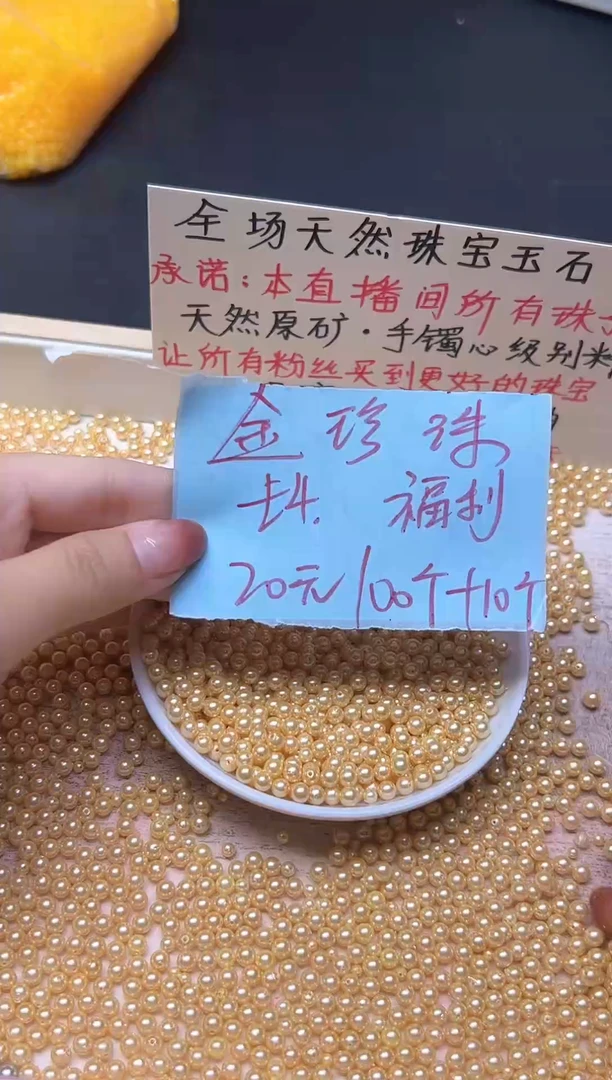 全场天然珠宝玉石
承诺:本直播间所有珠
天然原矿·手镯心级别料
让所有粉丝买到更好的珠宝
金珍珠
福利
20元/100个+10个